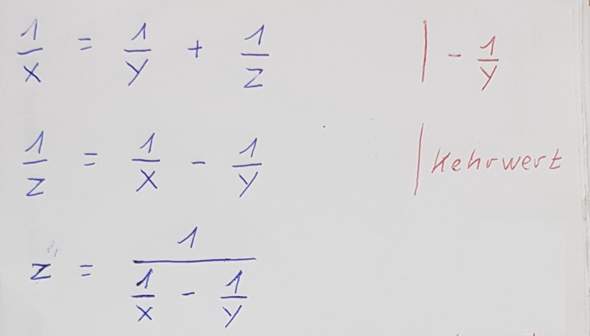 1/x = 1/y + 1/z | - 1/y
1/z = 1/x - 1/y | Kehrwert
z = 1/(1/x - 1/y)